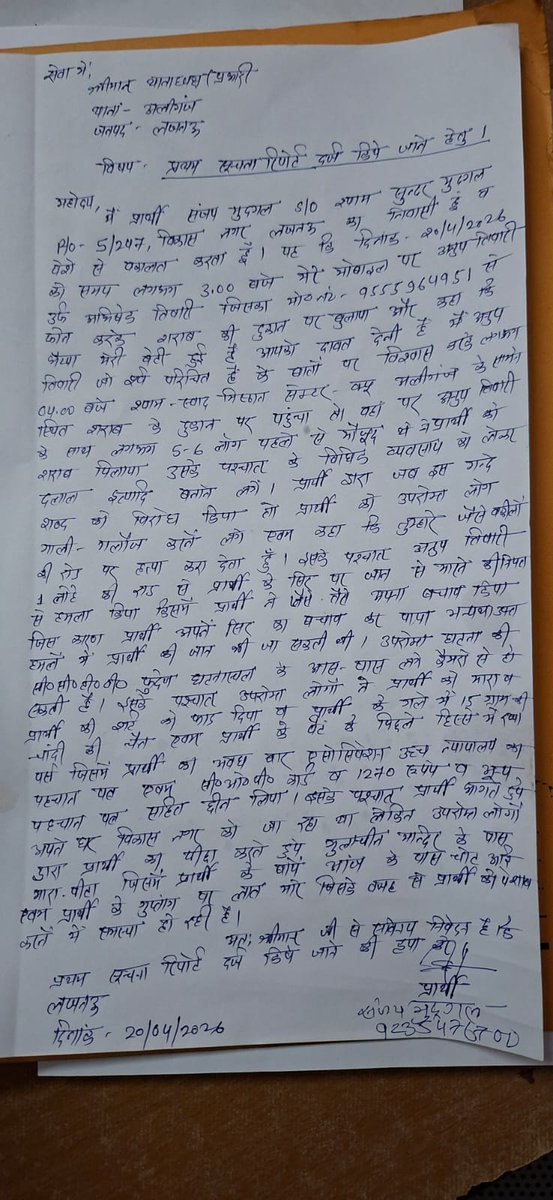 सेवा में,
श्रीमान थानाध्यक्ष/प्रभारी
थाना- अलीगंज
जनपद- लखनऊ
विषय- प्रथम सूचना रिपोर्ट दर्ज किये जाने हेतु।
महोदय,
में प्रार्थी संजय मुदगल S/O श्याम सुन्दर मुदगल
R/O- 5/207, विकास नगर लखनऊ का निवासी हूँ व
पेशे से वकालत करता हूँ। यह कि दिनांक- 20/4/2026
को समय लगभग 3:00 बजे मेरे मोबाइल पर अनुप तिवारी
उर्फ अभिषेक तिवारी जिसका मो० नं०- 9555964951 से
फोन करके शराब की दुकान पर बुलाया और कहा कि
भैय्या मेरी बेटी हुई है आपको दावत देनी है मैं अनुप
तिवारी जो पूर्व परिचित है के बातों पर विश्वास करके लगभग
04:00 बजे शाम- स्वाद मिष्ठान सेन्टर अलीगंज के सामने
स्थित शराब के दुकान पर पहुंचा तो वहां पर अनुप तिवारी
के साथ लगभग 5-6 लोग पहले से मौजूद थे ने प्रार्थी को
शराब पिलाया उसके पश्चात के विधिक व्यवसाय को लेकर
दलाल इत्यादि बताने लगे। प्रार्थी द्वारा जब इस गन्दे
शब्द का विरोध किया तो प्रार्थी को उपरोक्त लोग
गाली-गलौज करने लगे एवम कहा कि तुम्हारे जैसे वकीलों
की रोड पर हत्या करा देता हूँ। इसके पश्चात अनुप तिवारी
ने लोहे की राड से प्रार्थी के सिर पर जान से मारने की नियत
से हमला किया जिसमें प्रार्थी ने जैसे तैसे अपना बचाव किया
जिस कारण प्रार्थी अपने सिर का बचाव कर पाया अन्यथा उक्त
हमले में प्रार्थी की जान भी जा सकती थी। उपरोक्त घटना की
सी०सी०टी०वी० फुटेज घटनास्थल के आस-पास लगे कैमरो से हो
सकती है। इसके पश्चात उपरोक्त लोगों ने प्रार्थी को मारा व
प्रार्थी की शर्ट को फाड़ दिया व प्रार्थी के गले में 15 ग्राम की
चांदी की चैन एवम प्रार्थी के पैंट के पिछले हिस्से में रखा
पर्स जिसमें प्रार्थी का अवध बार एसोसिएशन उच्च न्यायालय का
पहचान पत्र एवम सी०ओ०पी० कार्ड व 1270 रूपये व अन्य
पहचान पत्र सहित छीन लिया। इसके पश्चात प्रार्थी भागते हुये
अपने घर विकास नगर को जा रहा था लेकिन उपरोक्त लोगों
द्वारा प्रार्थी का पीछा करते हुये गुलाचीन मन्दिर के पास
मारा-पीटा जिसमें प्रार्थी के बांये आंख के पास चोट आई
एवम प्रार्थी के गुप्तांग पर लात मारे जिसके वजह से प्रार्थी को पेशाब
करने में समस्या हो रही है।
अतः श्रीमान जी से सविनय निवेदन है कि
प्रथम सूचना रिपोर्ट दर्ज किये जाने की कृपा करें।
लखनऊ
दिनांक- 20/04/2026
प्रार्थी
संजय मुदगल